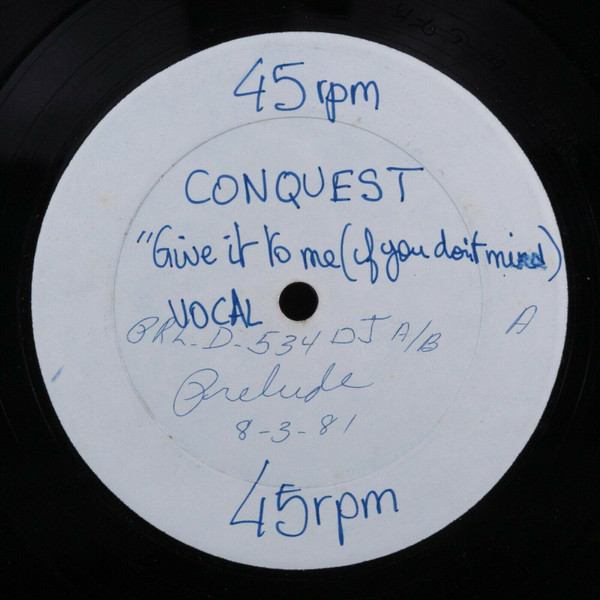 45 rpm
CONQUEST
"Give it to me (if you don't mind)
VOCAL
PRL-D-534 DJ A/B
A
Prelude
8-3-81
45 rpm